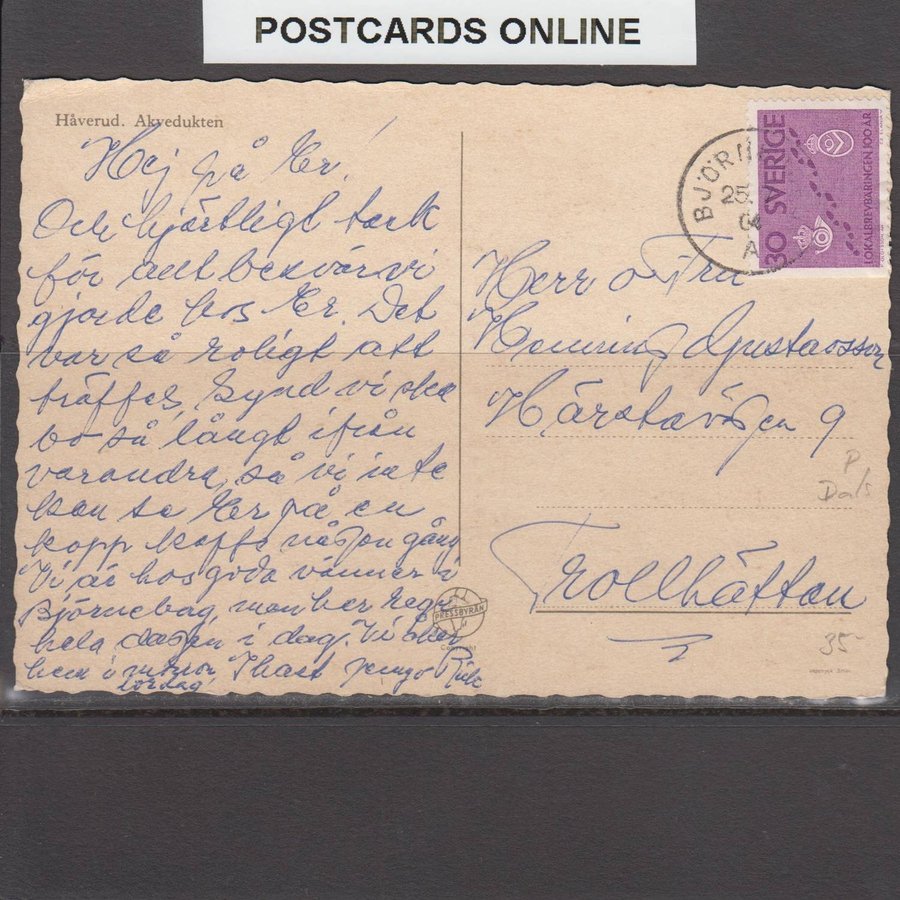 POSTCARDS ONLINE
Håverud. Akvedukten
Hej på Er!
Och hjärtligt tack
för allt besvär vi
gjorde hos Er. Det
var så roligt att
träffas, Synd vi ska
bo så långt ifrån
varandra, så vi inte
kan se Er på en
kopp kaffe någon gång
Vi är hos goda vänner i
Björneborg, men här regn
hela dagen i dag. Vi åker
hem i morron
lördag
I hast
PRESSBYRÅN
Copyright
BJÖRN
25.
A
30 SVERIGE
LOKALBREVBÄRINGEN 100 ÅR
Herr o Fru
Henning Gustavsson
9
Trollhättan
P
Dals
35-